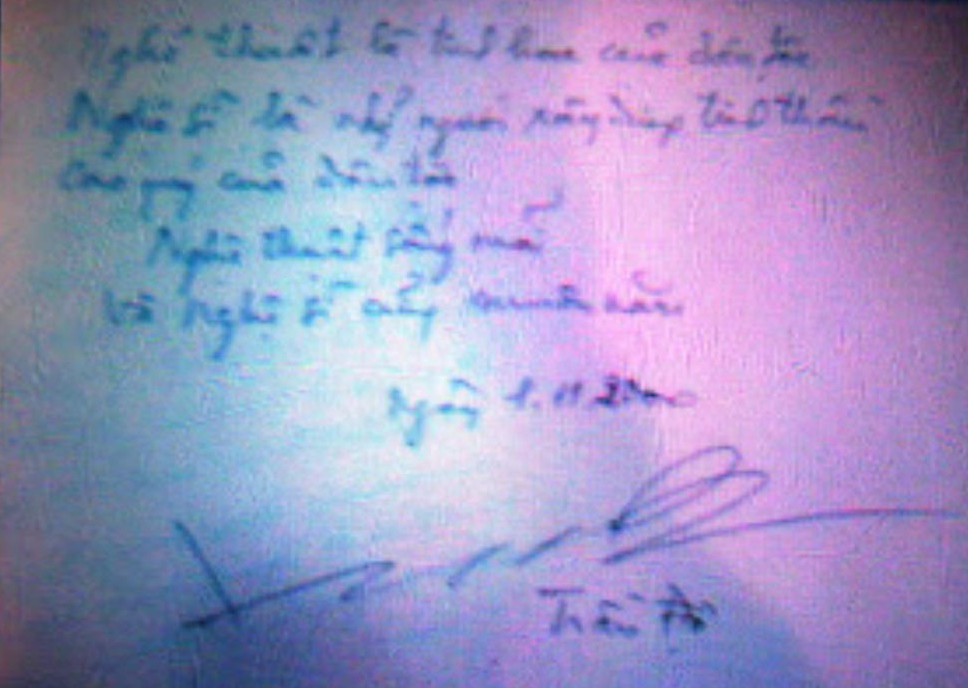 Nghệ thuật là tinh hoa của dân tộc
Nghệ sĩ là những người xây dựng tinh thần
cao quý của dân tộc
Nghệ thuật sống mãi
Và nghệ sĩ cũng muôn năm
Ngày 1.11.2000
Trần Độ